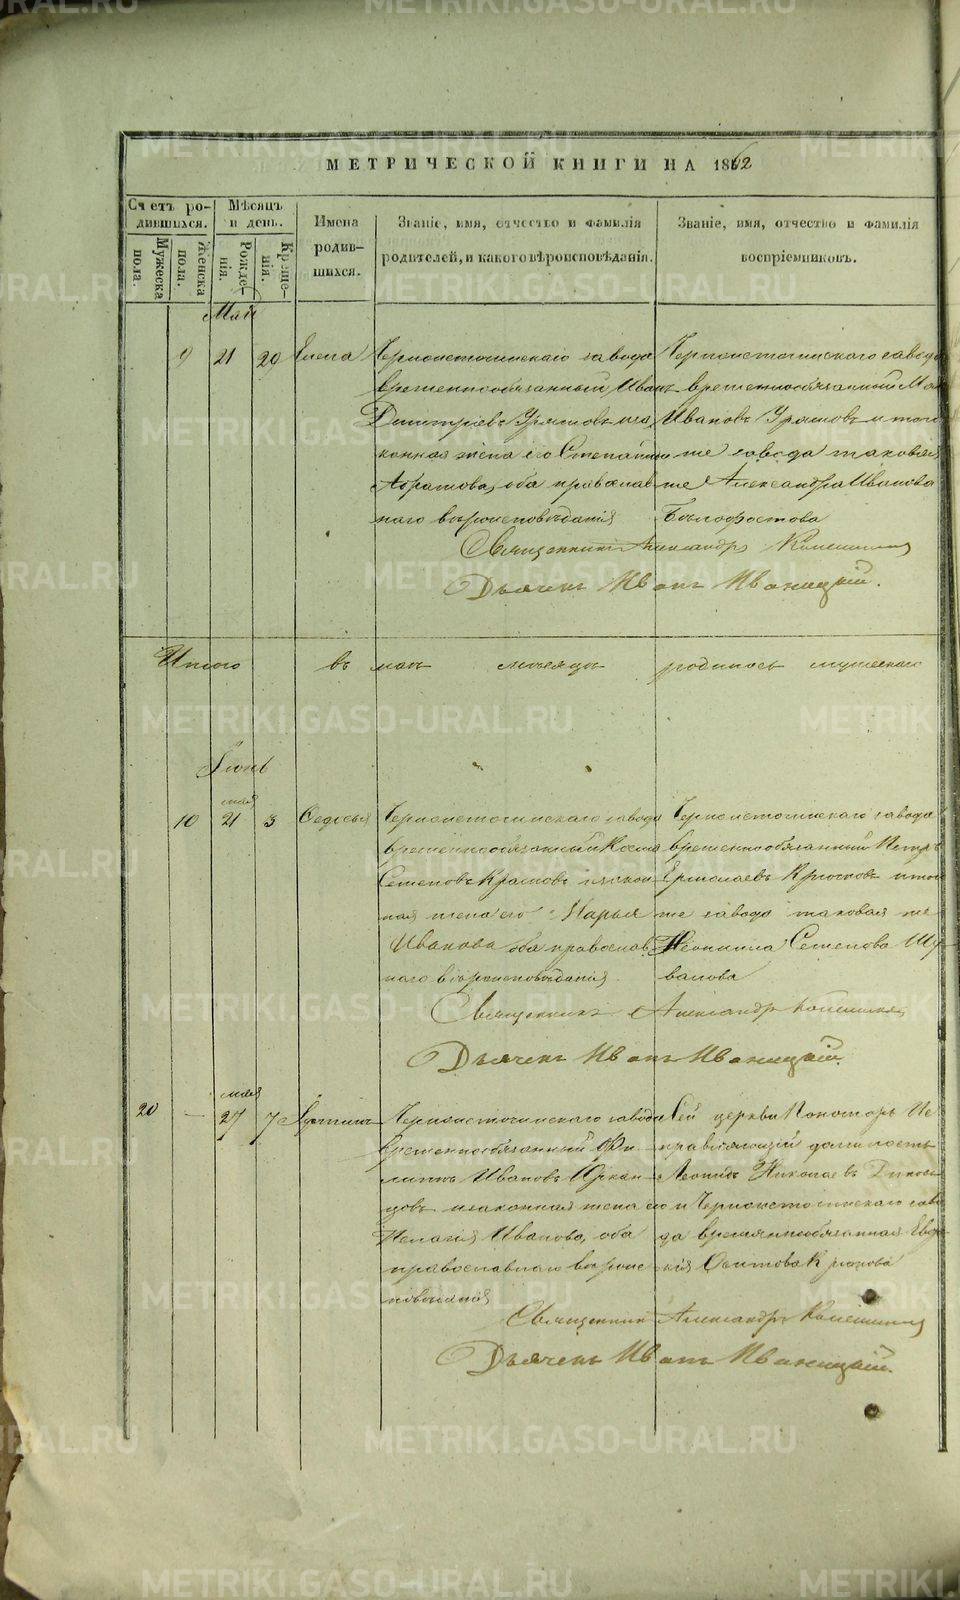 МЕТРИЧЕСКОЙ КНИГИ НА 1862
Счетъ родившихся.
Мужеска пола.
Женска пола.
Мѣсяцъ и день.
Рожденія.
Крещенія.
Имена родившихся.
Званіе, имя, отчество и фамилія родителей, и какого вѣроисповѣданія.
Званіе, имя, отчество и фамилія воспріемниковъ.
Май
9 21 29 Елена
Черноисточинскаго завода
временнообязанный Иванъ
Димитріевъ и за
конная жена его
оба православ
наго вѣроисповѣданія
Черноисточинскаго завода
временнообязанной
Ивановъ и того
же завода таковая
же Александра Иванова
Бѣлофостова
Священникъ Александръ
Дьячекъ Иванъ Иваницкій.
Итого въ маѣ мѣсяцѣ родилось мужескаго
Іюнь
мая
10 21 3 Ѳедосья
Черноисточинскаго завода
временнообязанный Козма
Семеновъ и закон
ная жена его Марья
Иванова оба православ
наго вѣроисповѣданія
Черноисточинскаго завода
временнообязанный Петръ
Ермолаевъ Крюковъ и того
же завода таковая же
Неонила Семенова Шу
валова
Священникъ Александръ
Дьячекъ Иванъ Иваницкій
мая
20 — 27 7
Черноисточинскаго завода
временнообязанный Фи
липъ Ивановъ
цовъ и законная жена его
Пелагія Иванова, оба
православнаго вѣроис
повѣданія
Сей церкви Пономаръ Ис
правляющій должность
Леонидъ Николаевъ
и Черноисточинскаго заво
да временнообязанная Евдо
кія Осипова Крюкова
Священникъ Александръ
Дьячекъ Иванъ Иваницкій.
METRIKI.GASO-URAL.RU